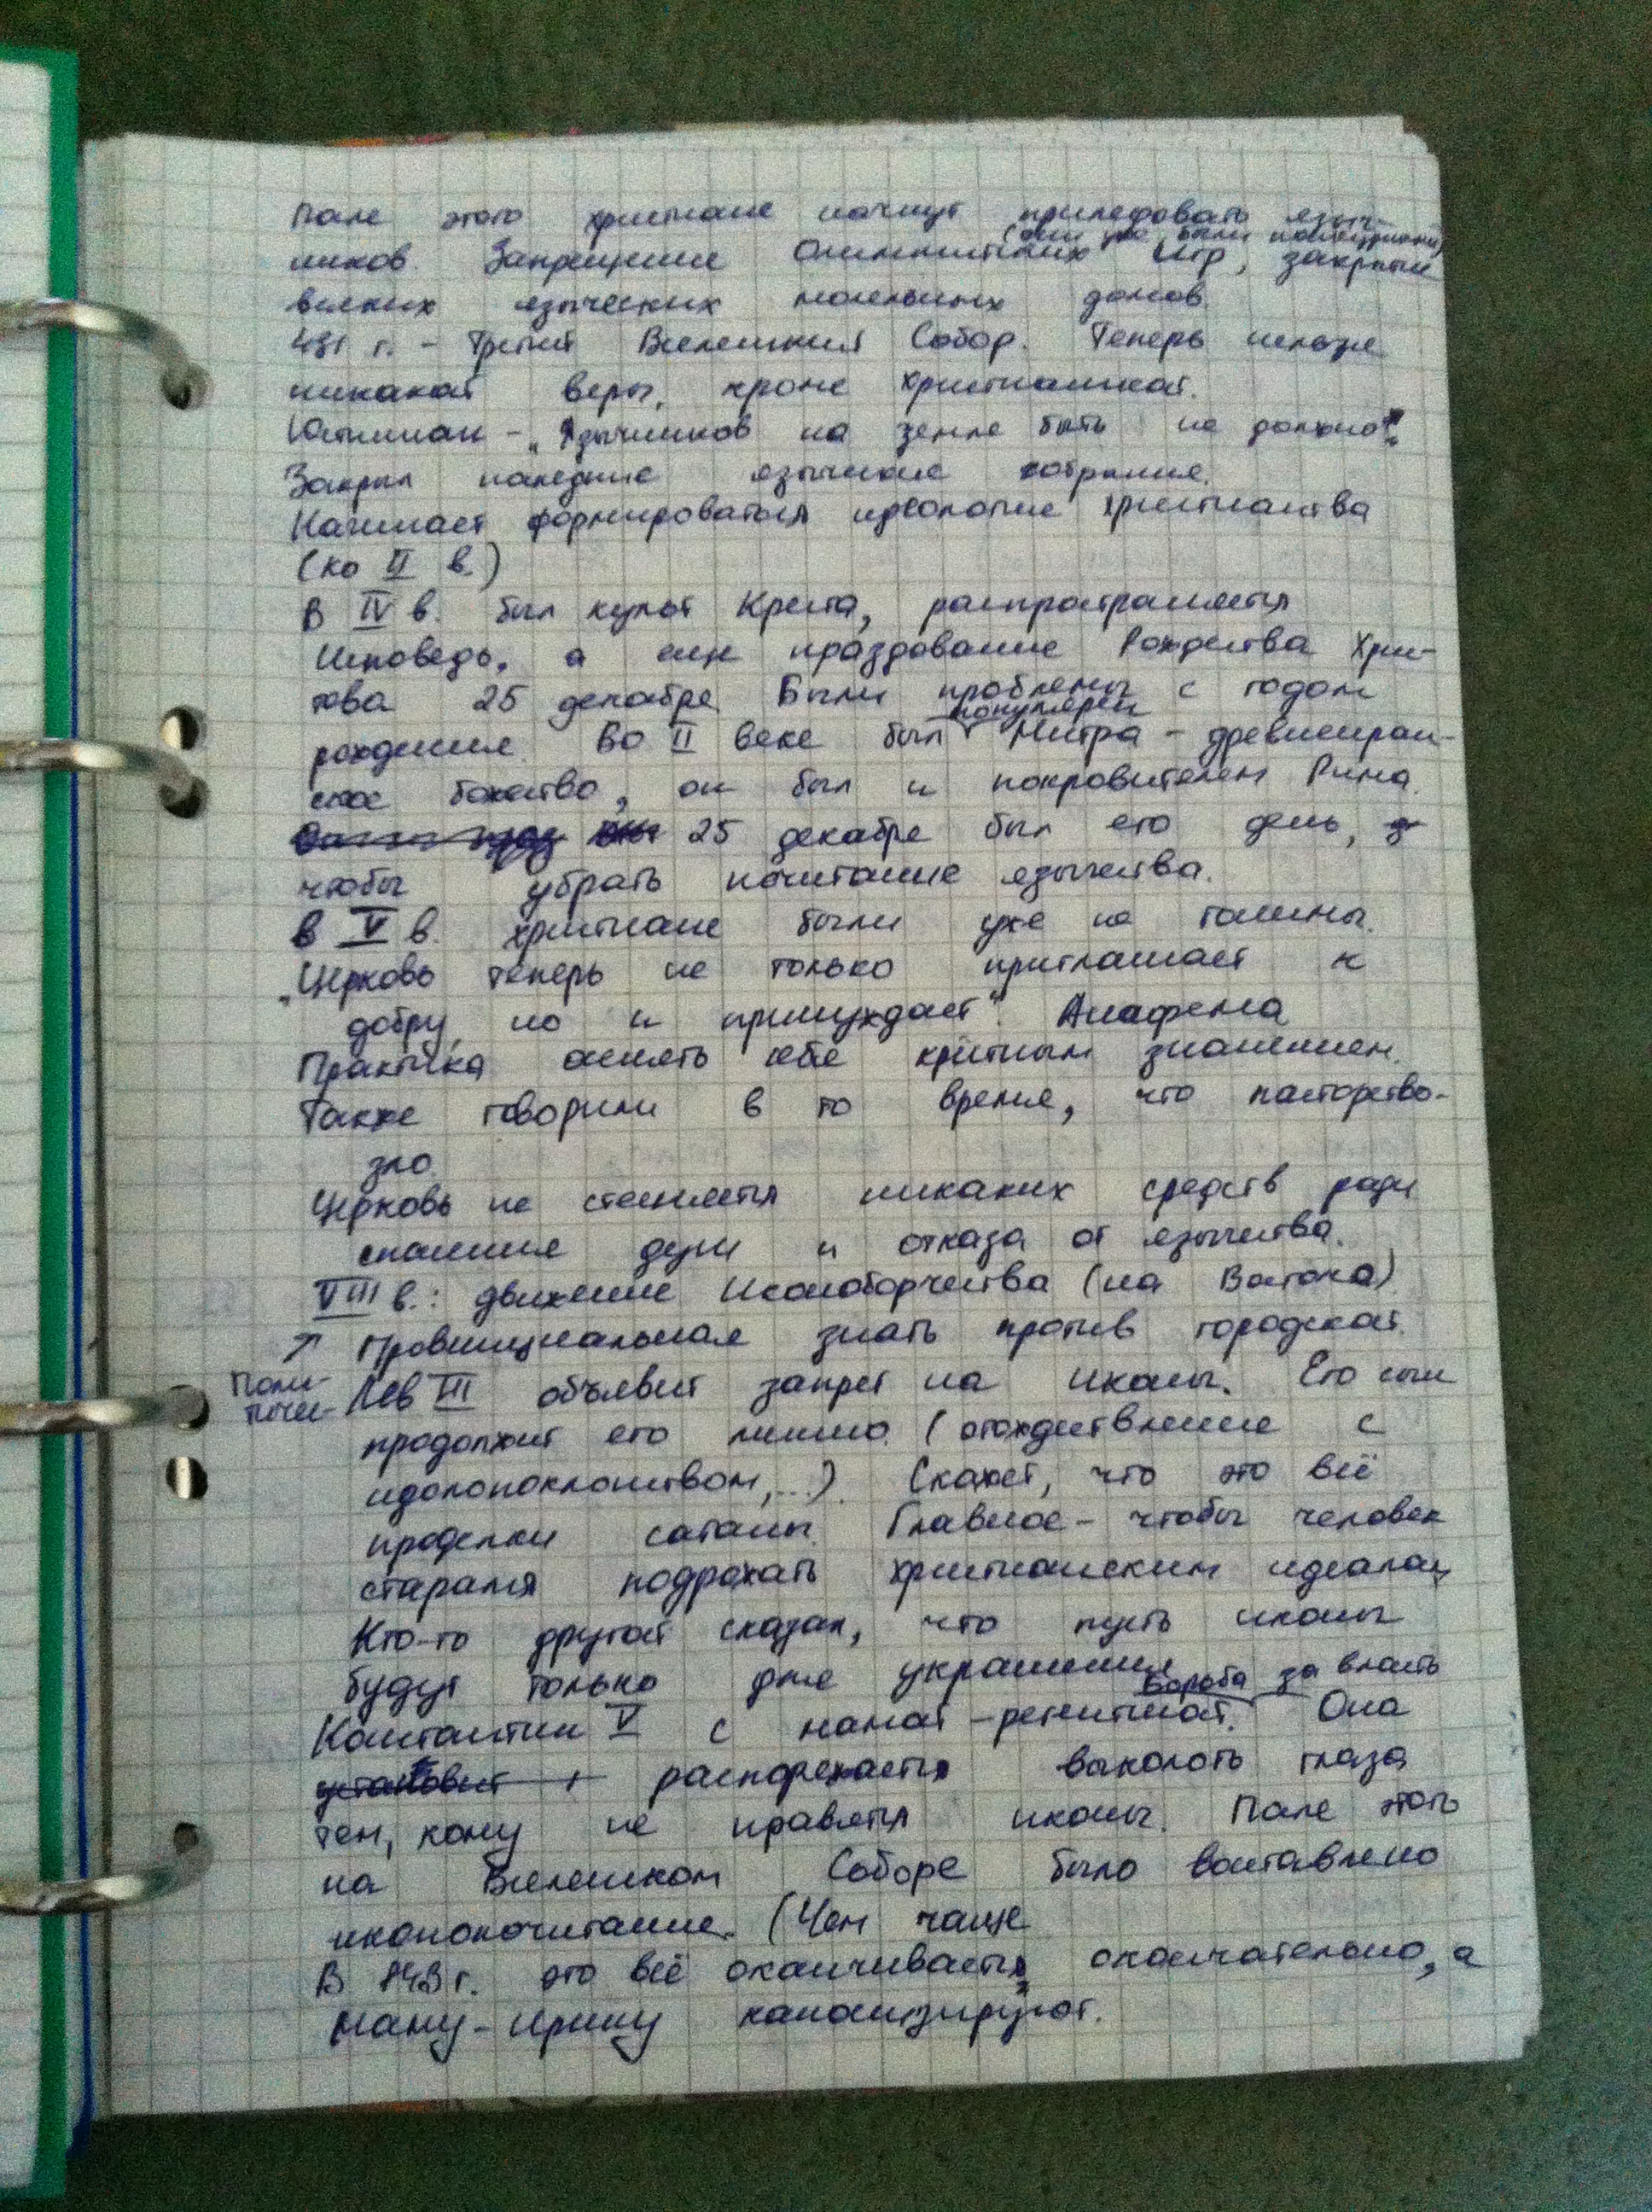 После этого христиане начнут преследовать языч-
(они уже были полноправны)
ников. Запрещение Олимпийских Игр, закрытие
всяких языческих молельных домов.
431 г. - Третий Вселенский Собор. Теперь нельзя
никакой веры, кроме христианской.
Юстиниан - „Язычников на земле быть не должно".
Закрыл последние языческие собрания.
Начинает формироваться идеология христианства
(ко II в.)
В IV в. был культ Креста, распространяется
Исповедь, а ещё празднование Рождества Хрис-
това 25 декабря. Были проблемы с годом
популярен
рождения. Во II веке был Митра - древнеиран-
ское божество, он был и покровителем Рима.
25 декабря был его день,
чтобы убрать почитание язычества.
в V в. христиане были уже не гонимы.
„Церковь теперь не только приглашает к
добру, но и принуждает". Анафема
Практика осенять себя крестным знамением.
Также говорили в то время, что пасторство-
зло.
Церковь не стесняется никаких средств ради
спасения души и отказа от язычества.
VIII в.: движение Иконоборчества (на Востоке)
↗ Провинциальная знать против городской.
Лев III объявит запрет на иконы. Его сын
продолжит его линию. (отождествление с
идолопоклонством,...). Скажет, что это всё
проделки сатаны. Главное - чтобы человек
старался подражать христианским идеалам
Кто-то другой сказал, что пусть иконы
будут только для украшения.
борьба за власть
Константин V с мамой-регентшой. Она
установит распоряжается выколоть глаза
тем, кому не нравятся иконы. После этого
на Вселенском Соборе было восставлено
иконопочитание. (Чем чаще
В 843 г. это всё оканчивается, окончательно, а
маму-Ирину канонизируют.